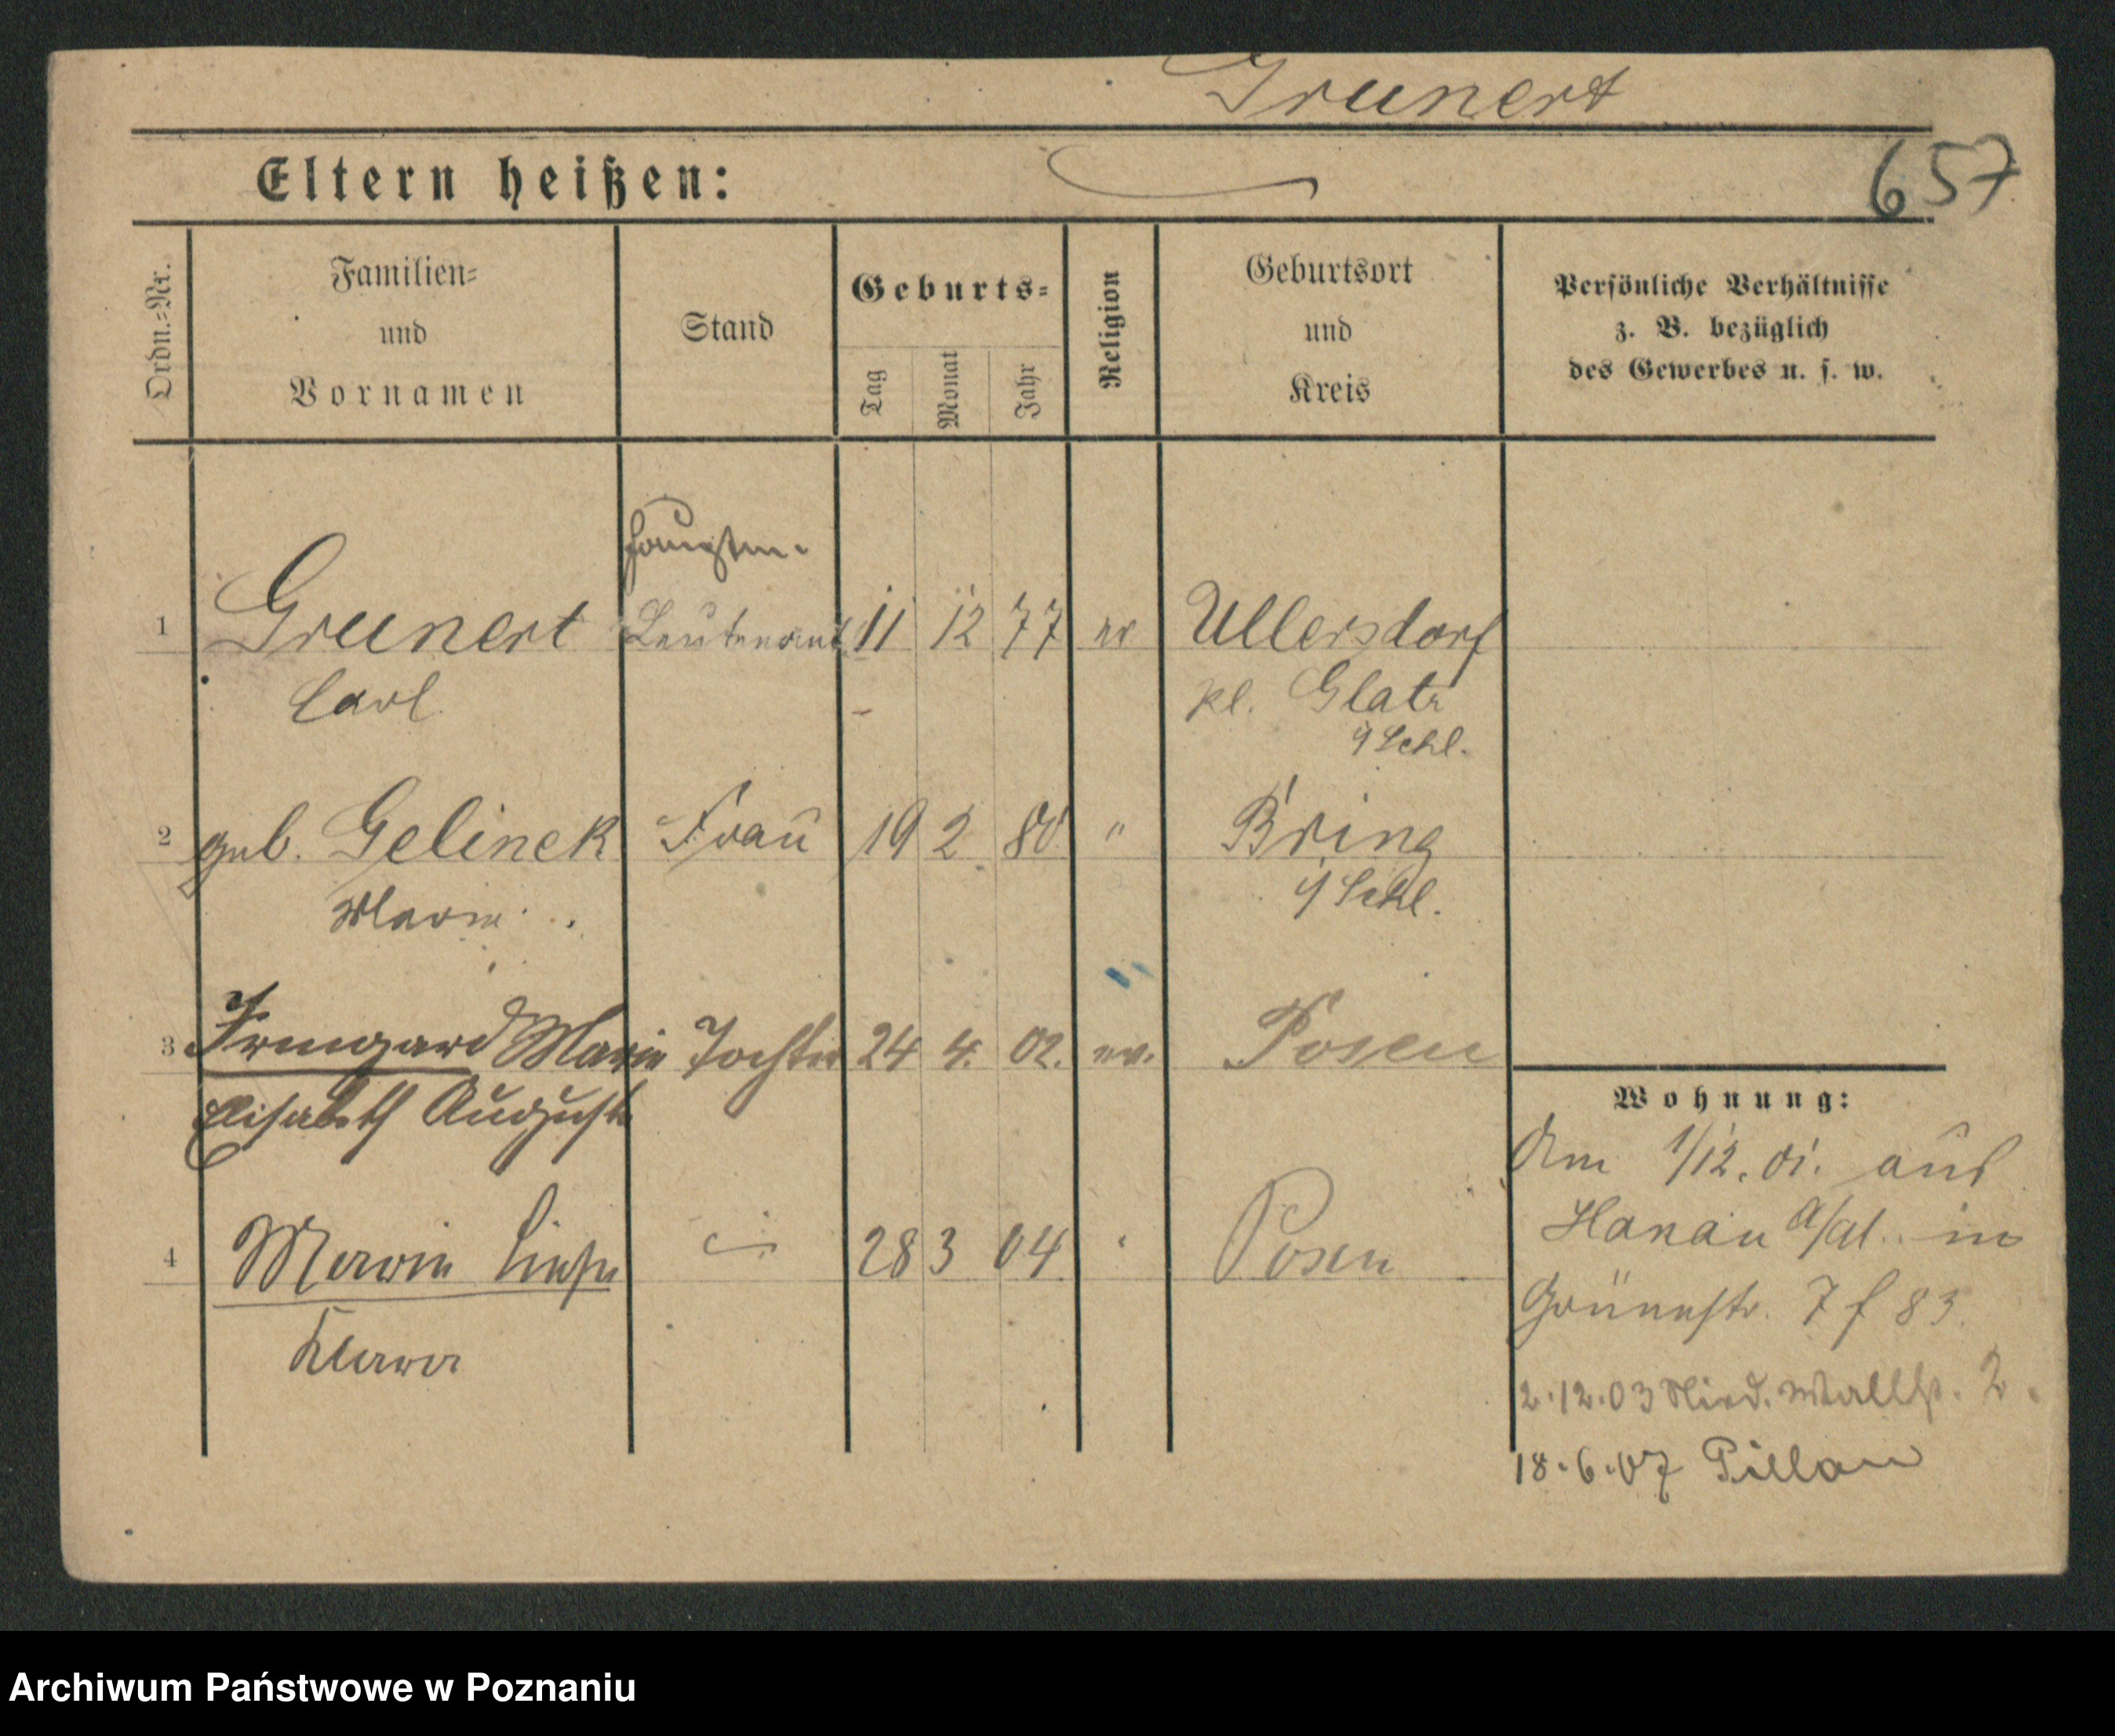 Grunert
657
Eltern heißen:
Ordn.-Nr.
Familien-
und
Vornamen
Stand
Geburts-
Tag
Monat
Jahr
Religion
Geburtsort
und
Kreis
Persönliche Verhältnisse
z. B. bezüglich
des Gewerbes u. s. w.
Hauptm.
1 Grunert Leutenant 11 12 77 ev Ullersdorf
Carl Kr. Glatz
Schl.
2 geb. Gelinek Frau 19 2 80 " Brieg
Marie Schl.
3 Irmgard Marie Tochter 24 4. 02. ev. Posen
Elisabeth Auguste
4 Maria Luise 28 3 04 Posen
Klara
Wohnung:
Am 1/12. 01. aus
Hanau a/M. in
Grünestr. 7 f 83.
2.12.03 Nied. Wallstr. 2.
18.6.07 Pillau
Archiwum Państwowe w Poznaniu